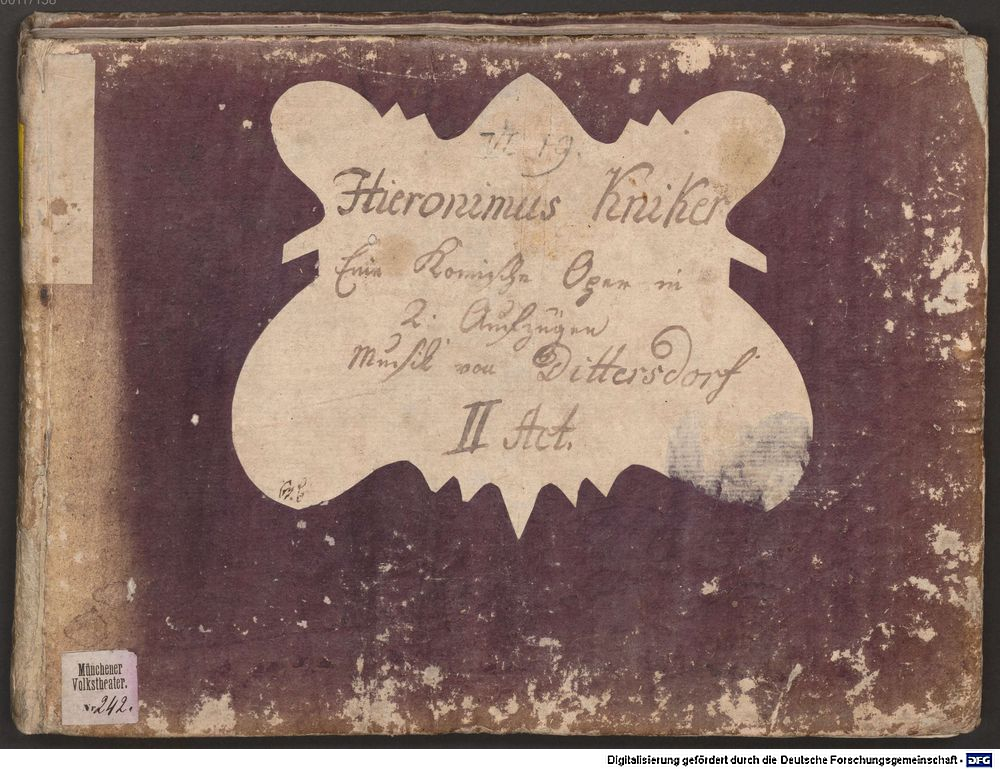 00117138
VI 19.
Hieronimus Kniker
Eine Komische Oper in
2. Aufzügen
Musik von Dittersdorf
II Act.
Münchener
Volkstheater.
Nr. 242.
Digitalisierung gefördert durch die Deutsche Forschungsgemeinschaft - DFG